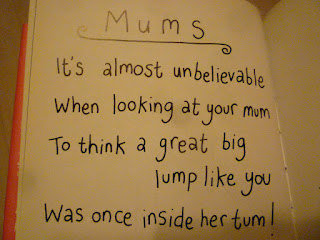 Mums
It's almost unbelievable
When looking at your mum
To think a great big
lump like you
Was once inside her tum!